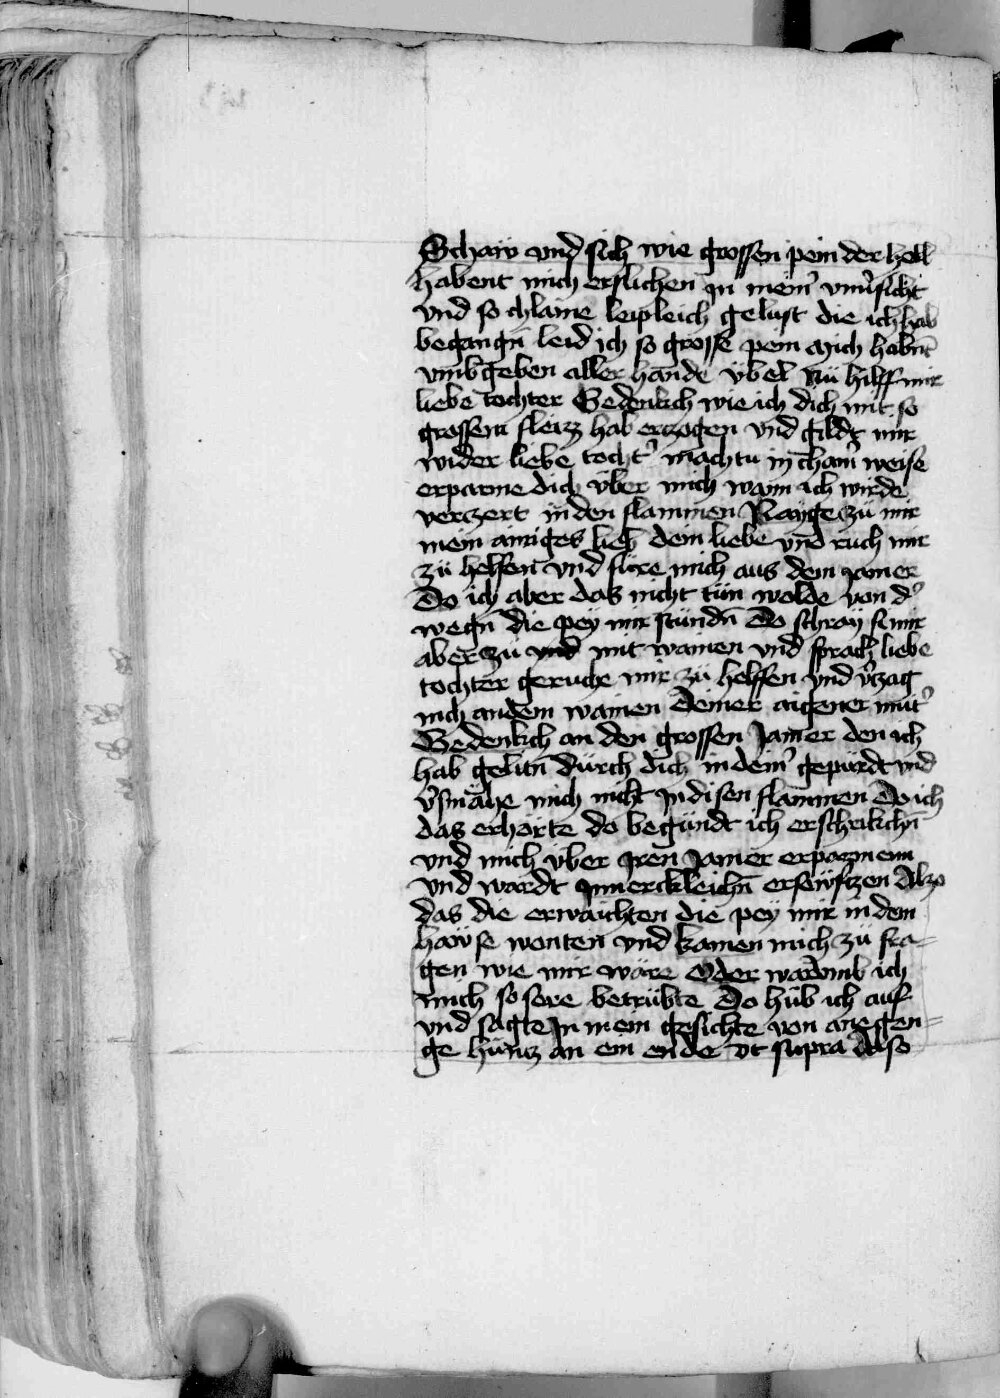 Schaw vnd sich wie grossen pein der hell
habent mich erslichen in mein̄ vnuͤsicht
vnd so chlaine leipleich gelust die ich hab
begangn̄ leid ich so grosse pein Mich habnt̄
vmbgeben aller hande v̈bel Nu hilff mir
liebe tochter Gedenkch wie ich dich mit so
grossem fleizz hab erczogen vnd gildt mir
wider liebe tocht' machtu in cham̄ weise
erparme dich vber mich wann ich wirde
verczert in den flammen Rayge zu mir
mein ainiges lieb dein liebe vnd ruch mir
zu helfen vnd füre mich aus dem Jamer
Do ich aber das nicht tün wolde von d'
wegn̄ die pey mir stündn̄ Do schray si mir
aber zu mit wainen vnd sprach liebe
tochter geruche mir zü helffen vnd v'zag
nich an dem wainen Deiner aigener mut'
Gedenkch an den grossen Jamer den ich
hab gelitn̄ dürch dich in dein' gepürdt vnd
v'smähe mich nicht in disen flammen Do ich
das erhörte do begündt ich erschrikchn̄
vnd mich vber Jren Jamer erparmenn
vnd wardt Innerckleichn̄ erseüftzen Also
das die erwachten die pey mir in dem
hawse wonten vnd kamen mich zü fra=
gen wie mir wäre Oder warvmb ich
mich so sere betrübte Do hüb ich auf
vnd sagte In mein gesichte von anegen=
ge hüntz an ein ende vt supra Also